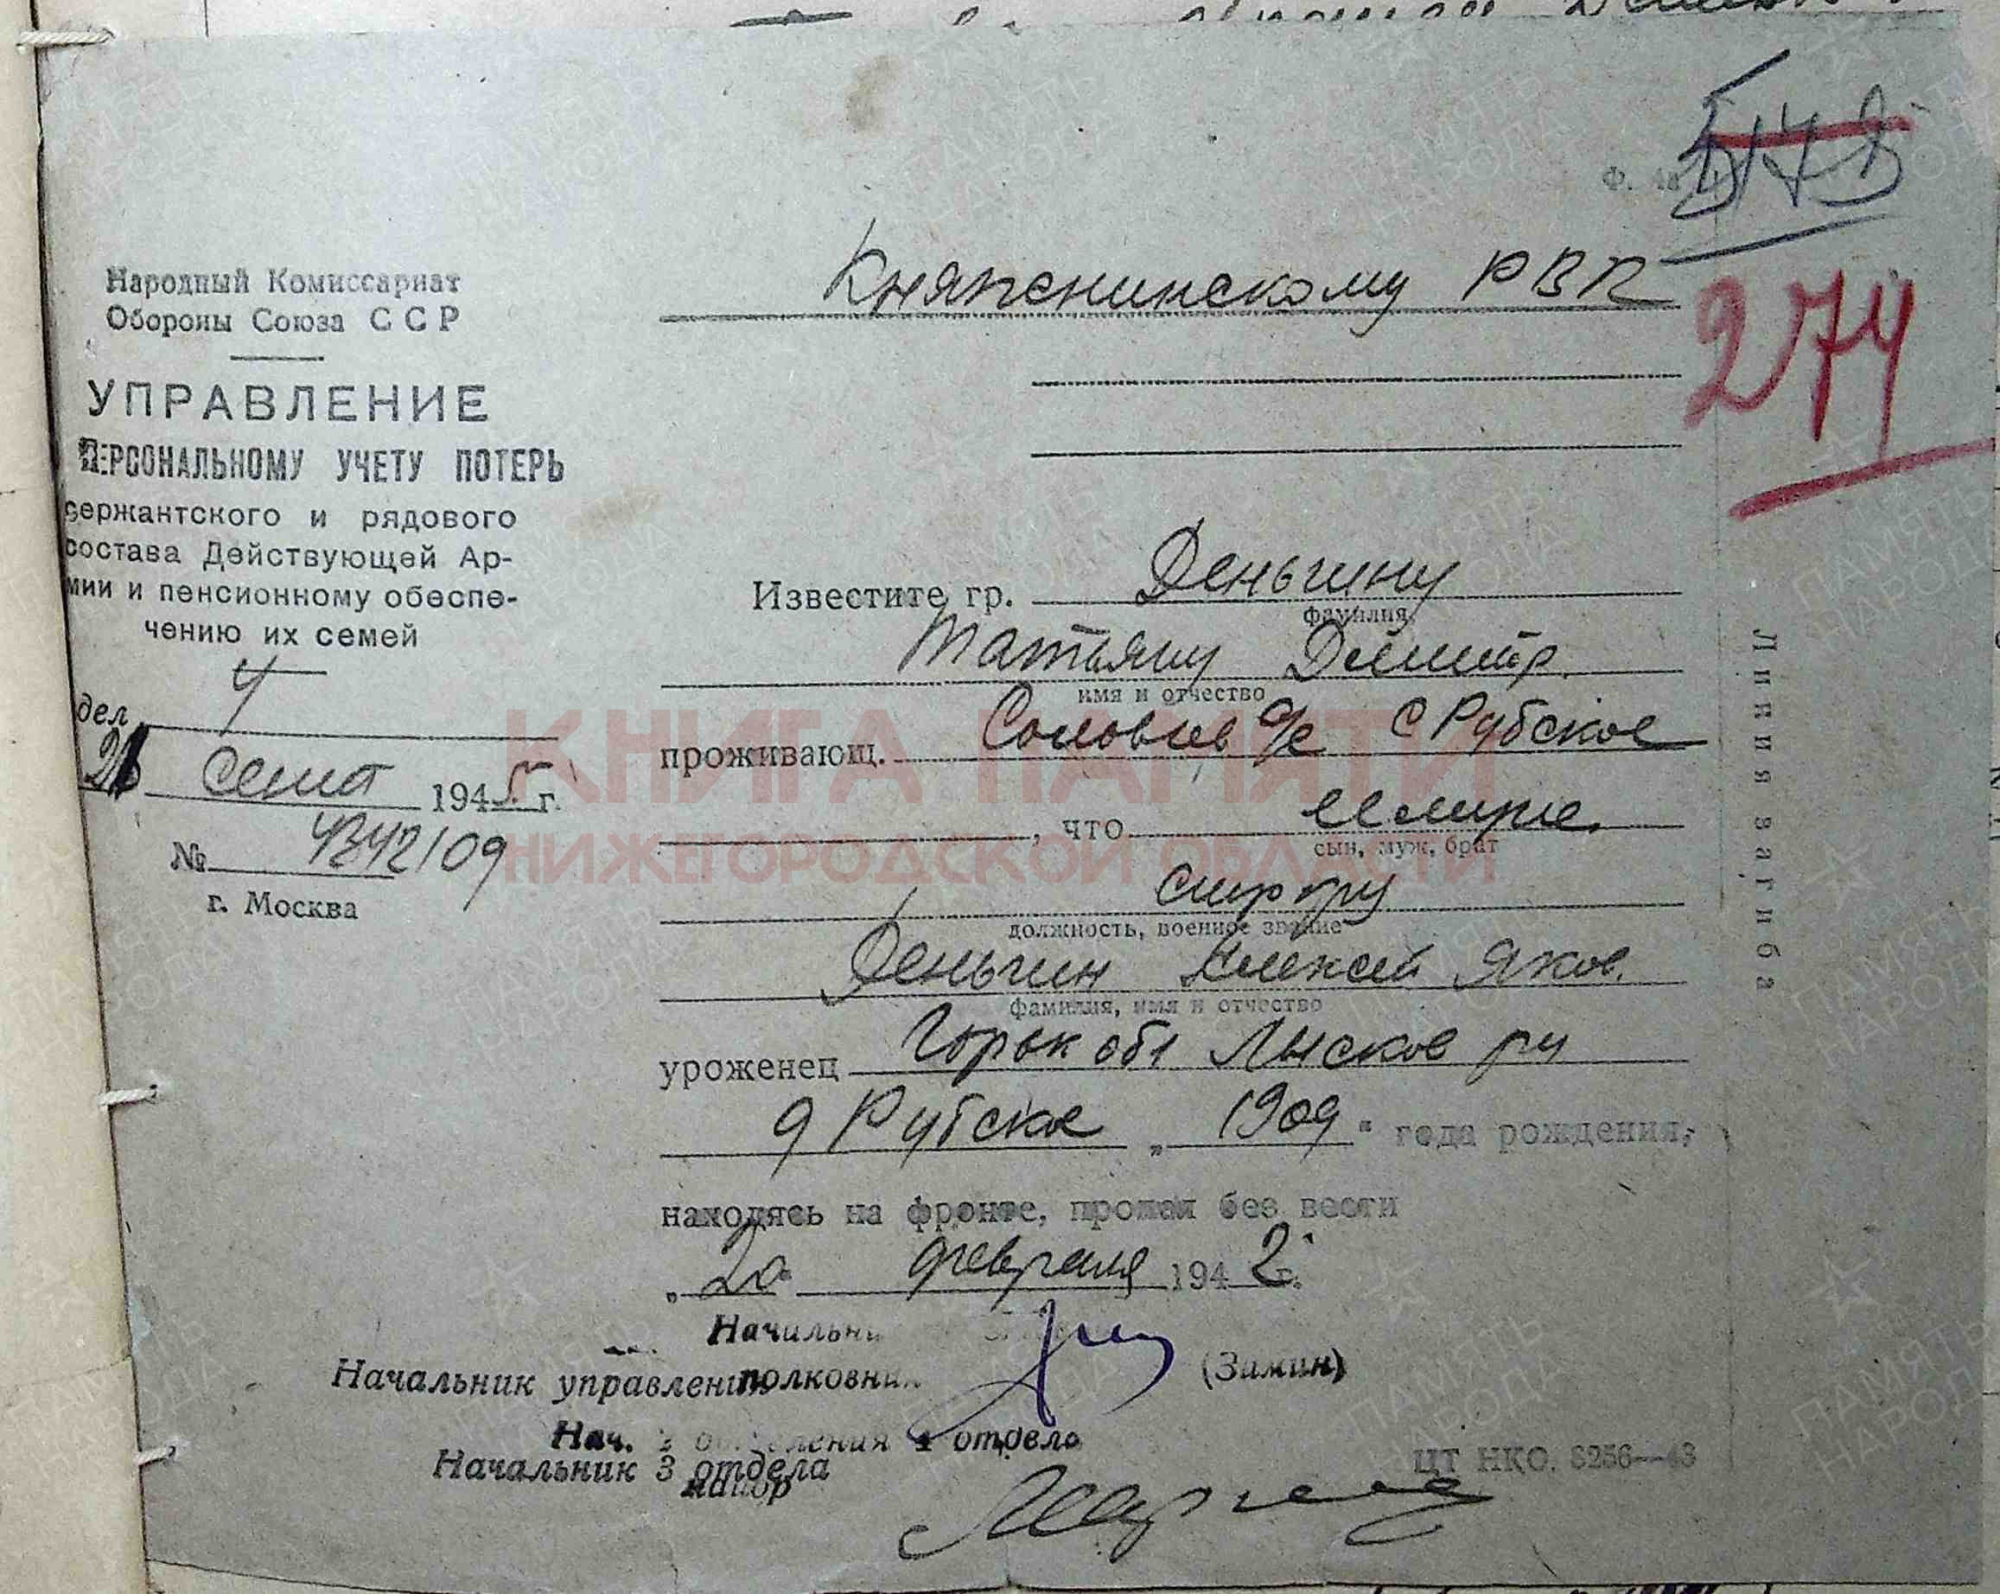 274
Народный Комиссариат
Обороны Союза ССР
УПРАВЛЕНИЕ
ПЕРСОНАЛЬНОМУ УЧЕТУ ПОТЕРЬ
сержантского и рядового
состава Действующей Ар-
мии и пенсионному обеспе-
чению их семей
дел 4
21 сент 1945 г.
№ 4342/09
г. Москва
Княгининскому РВК
Известите гр. Деньгину
фамилия
Татьяну Дмитр.
имя и отчество
проживающ. Соловьев с/с с Рубское
, что её муж
сын, муж, брат
должность, военное звание
Деньгин Алексей Яков.
фамилия, имя и отчество
уроженец Горьк обл Лысков рн
д Рубское „ 1909 " года рождения,
находясь на фронте, пропал без вести
„ 20 " февраля 1942 г.
Начальник
Начальник управления полковник (Замин)
Нач. отделения 4 отдела
Начальник 3 отдела
майор
ЦТ НКО. 3256—43
Линия загиба
КНИГА ПАМЯТИ
НИЖЕГОРОДСКОЙ ОБЛАСТИ
ПАМЯТЬ НАРОДА